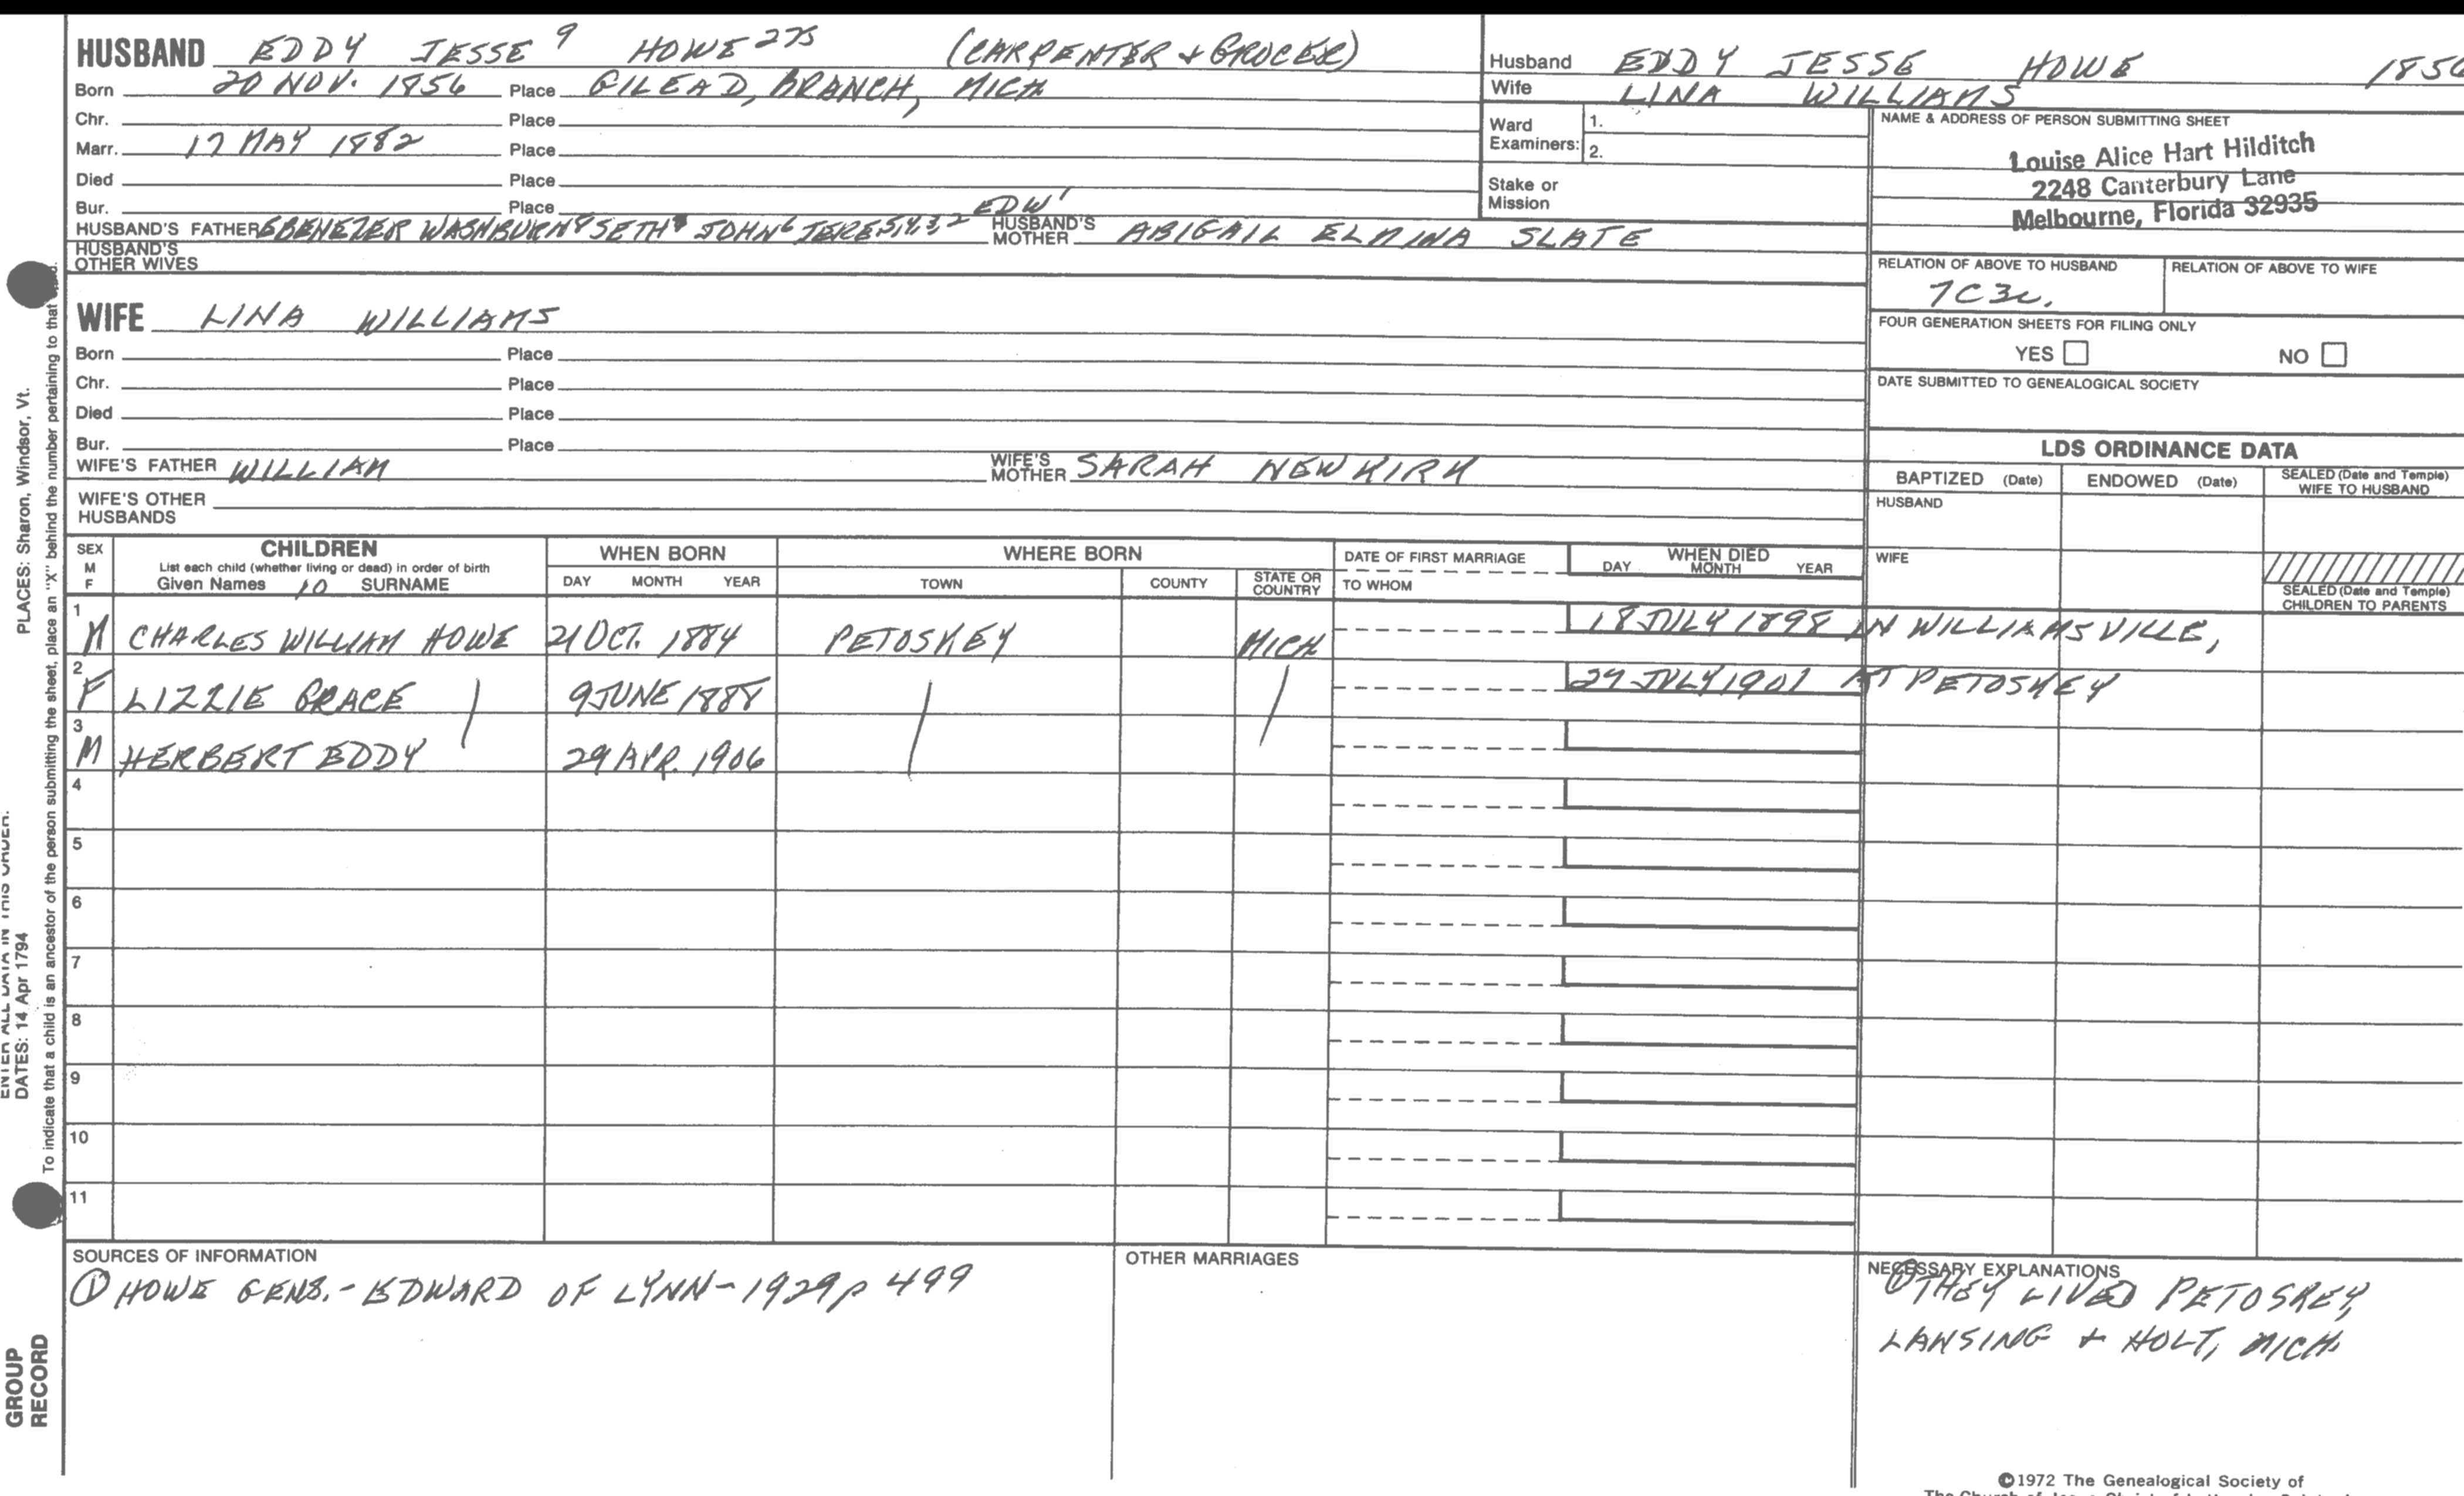 HUSBAND EDDY JESSE 9 HOWE 275 (CARPENTER + GROCER)
Born 20 NOV. 1856 Place GILEAD, BRANCH, MICH
Chr. Place
Marr. 17 MAY 1882 Place
Died Place
Bur. Place EDW 1
HUSBAND'S FATHER EBENEZER WASHBURN 8 SETH 7 JOHN 6 JERE 5,4,3,2 HUSBAND'S MOTHER ABIGAIL ELMINA SLATE
HUSBAND'S
OTHER WIVES
WIFE LINA WILLIAMS
Born Place
Chr. Place
Died Place
Bur. Place
WIFE'S FATHER WILLIAM WIFE'S MOTHER SARAH NEWKIRK
WIFE'S OTHER
HUSBANDS
Husband EDDY JESSE HOWE 1856
Wife LINA WILLIAMS
Ward Examiners: 1.
2.
Stake or
Mission
NAME & ADDRESS OF PERSON SUBMITTING SHEET
Louise Alice Hart Hilditch
2248 Canterbury Lane
Melbourne, Florida 32935
RELATION OF ABOVE TO HUSBAND RELATION OF ABOVE TO WIFE
7C3C.
FOUR GENERATION SHEETS FOR FILING ONLY
YES NO
DATE SUBMITTED TO GENEALOGICAL SOCIETY
LDS ORDINANCE DATA
BAPTIZED (Date) ENDOWED (Date) SEALED (Date and Temple) WIFE TO HUSBAND
HUSBAND
WIFE
SEALED (Date and Temple)
CHILDREN TO PARENTS
SEX M F CHILDREN WHEN BORN WHERE BORN DATE OF FIRST MARRIAGE WHEN DIED
List each child (whether living or dead) in order of birth
Given Names 10 SURNAME DAY MONTH YEAR TOWN COUNTY STATE OR COUNTRY TO WHOM DAY MONTH YEAR
1 M CHARLES WILLIAM HOWE 21 OCT. 1884 PETOSKEY MICH 18 JULY 1898 IN WILLIAMSVILLE,
2 F LIZZIE GRACE 9 JUNE 1888 29 JULY 1901 AT PETOSKEY
3 M HERBERT EDDY 29 APR. 1906
4
5
6
7
8
9
10
11
SOURCES OF INFORMATION
① HOWE GENS. - EDWARD OF LYNN - 1929 p 499
OTHER MARRIAGES
NECESSARY EXPLANATIONS
① THEY LIVED PETOSKEY,
LANSING + HOLT, MICH.
©1972 The Genealogical Society of
PLACES: Sharon, Windsor, Vt.
ENTER ALL DATA IN THIS ORDER:
DATES: 14 Apr 1794
To indicate that a child is an ancestor of the person submitting the sheet, place an "X" behind the number pertaining to that
GROUP
RECORD